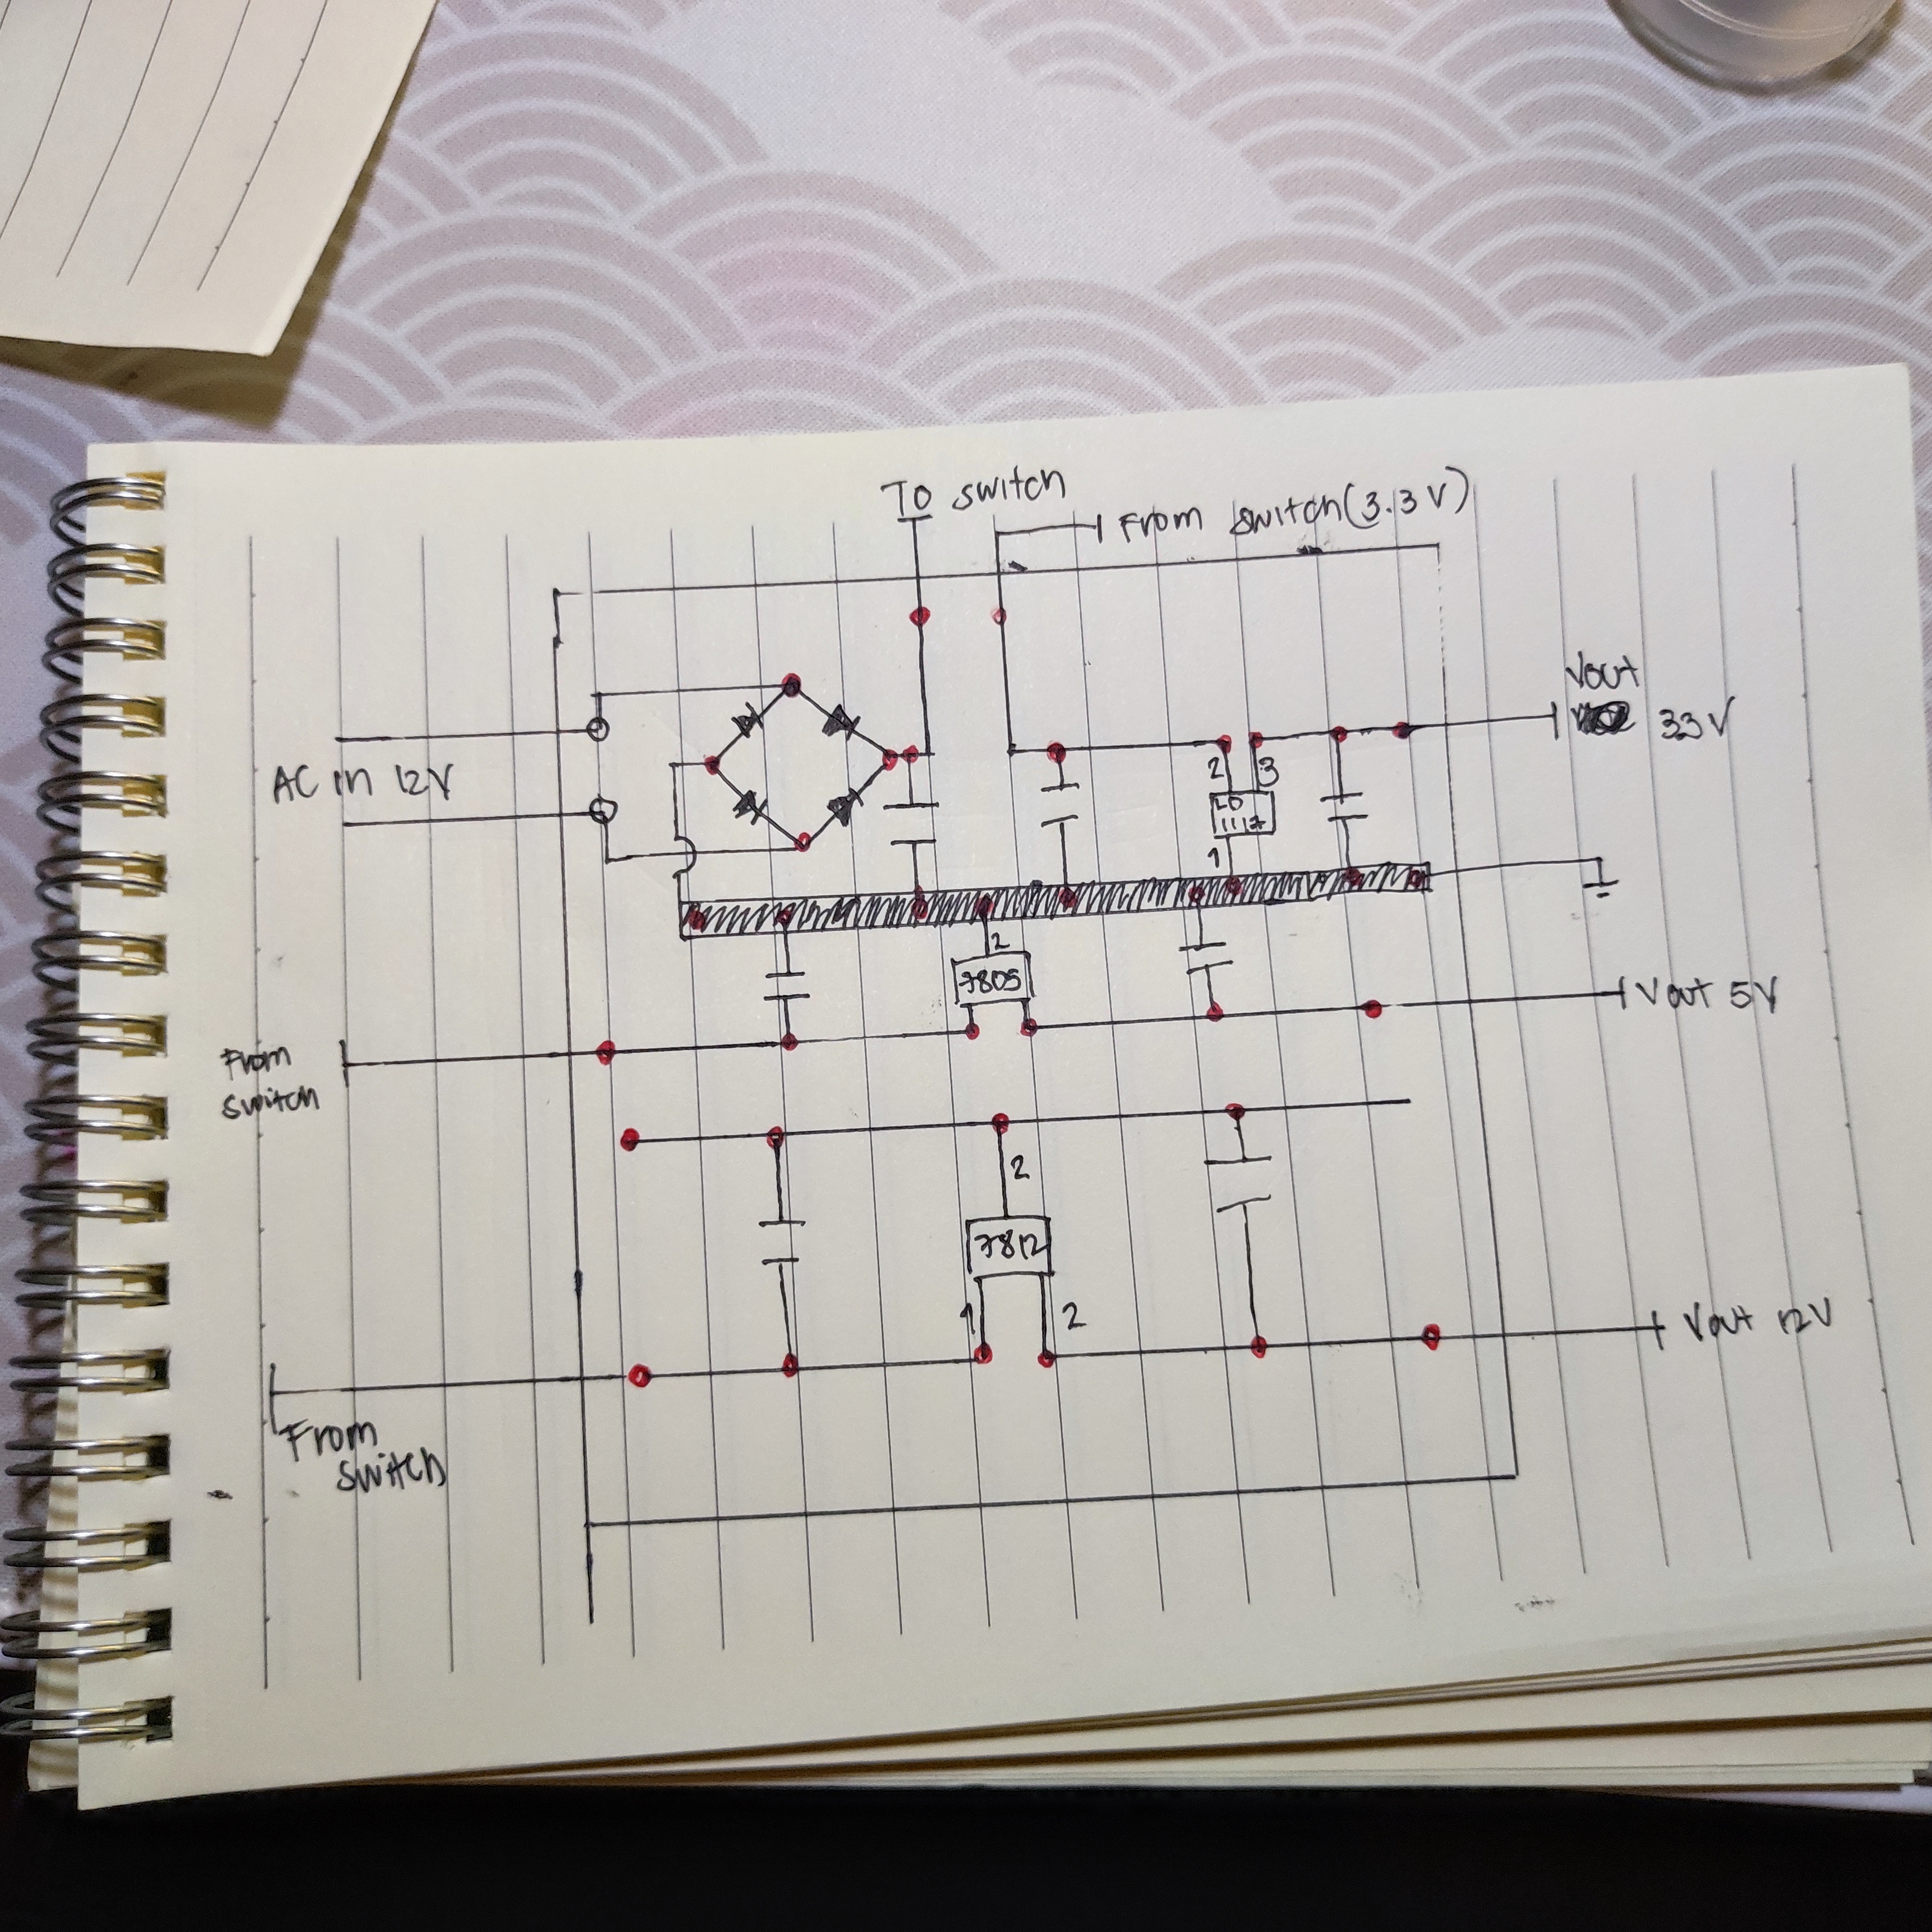 To switch
From switch(3.3V)
Vout
33V
AC in 12V
2
3
LD
1117
1
2
7805
Vout 5V
From
switch
2
7812
1
2
Vout 12V
From
switch